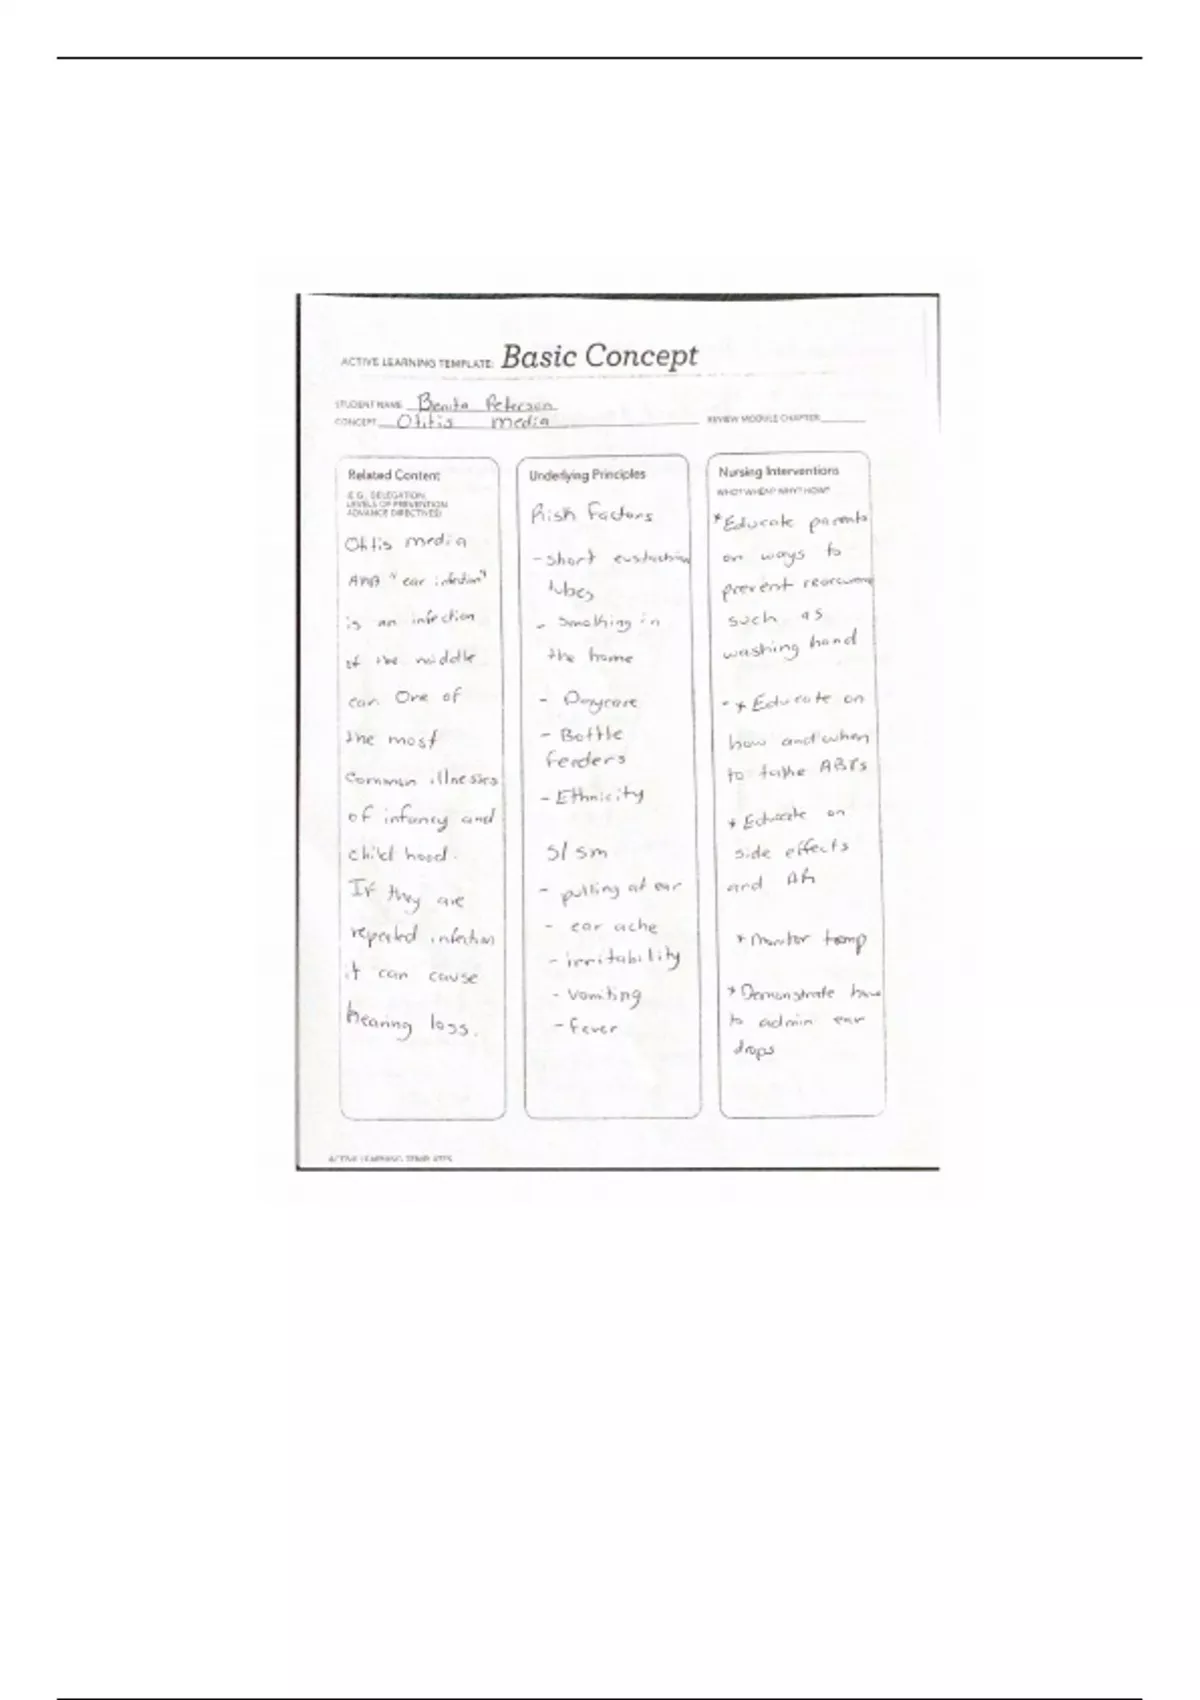 ACTIVE LEARNING TEMPLATE: Basic Concept
STUDENT NAME Benita Peterson
CONCEPT Otitis media
REVIEW MODULE CHAPTER
Related Content
(E.G., DELEGATION,
LEVELS OF PREVENTION,
ADVANCE DIRECTIVES)
Otitis media
AKA "ear infection"
is an infection
of the middle
ear. One of
the most
common illnesses
of infancy and
child hood.
If they are
repeated infection
it can cause
hearing loss.
Underlying Principles
Risk Factors
- short eustachian
tubes
- Smoking in
the home
- Daycare
- Bottle
feeders
- Ethnicity
S/Sm
- pulling at ear
- ear ache
- irritability
- vomiting
- fever
Nursing Interventions
WHO? WHEN? WHY? HOW?
*Educate parents
on ways to
prevent
such as
washing hand
-* Educate on
how and when
to take ABTs
* Educate on
side effects
and
* Monitor temp
* Demonstrate how
to admin ear
drops
ACTIVE LEARNING TEMPLATES